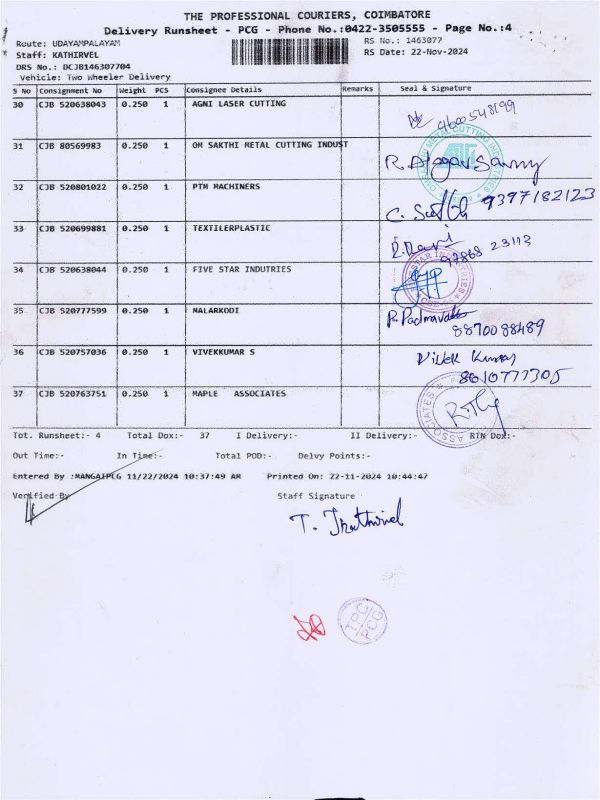 THE PROFESSIONAL COURIERS, COIMBATORE
Delivery Runsheet - PCG - Phone No.:0422-3505555 - Page No.:4
Route: UDAYAMPALAYAM RS No.: 1463077
Staff: KATHIRVEL RS Date: 22-Nov-2024
DRS No.: DCJB146307704
Vehicle: Two Wheeler Delivery
S No Consignment No Weight PCS Consignee Details Remarks Seal & Signature
30 CJB 520638043 0.250 1 AGNI LASER CUTTING 9600548199
31 CJB 80569983 0.250 1 OM SAKTHI METAL CUTTING INDUST R. Alagar Samy
32 CJB 520801022 0.250 1 PTM MACHINERS C. Sathh 9397182123
33 CJB 520699881 0.250 1 TEXTILERPLASTIC R. Ravi 97868 23113
34 CJB 520638044 0.250 1 FIVE STAR INDUTRIES
35 CJB 520777599 0.250 1 MALARKODI P. Padmavathi 8870088489
36 CJB 520757036 0.250 1 VIVEKKUMAR S Vivek Kumar 8610777305
37 CJB 520763751 0.250 1 MAPLE ASSOCIATES ASSOCIATES
Tot. Runsheet:- 4 Total Dox:- 37 I Delivery:- II Delivery:- RTN Dox:-
Out Time:- In Time:- Total POD:- Delvy Points:-
Entered By :MANGAIPCG 11/22/2024 10:37:49 AM Printed On: 22-11-2024 10:44:47
Verified By Staff Signature
T. Kathirvel
TPC
PCG